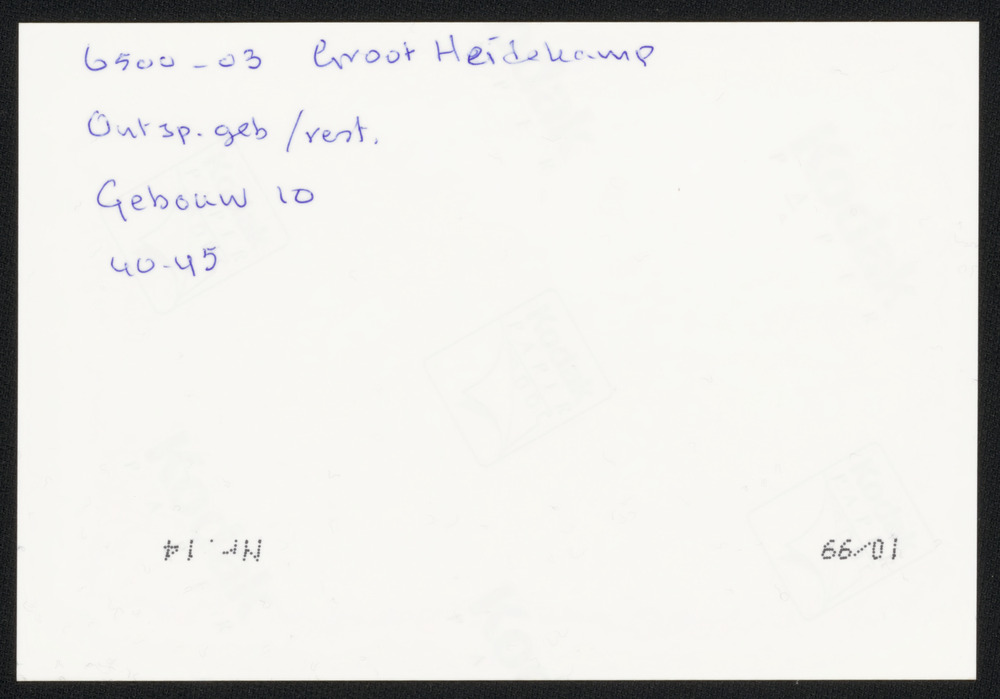 6500-03 Groot Heidekamp
Ontsp. geb /rest.
Gebouw 10
40-45
Nr. 14
10/99